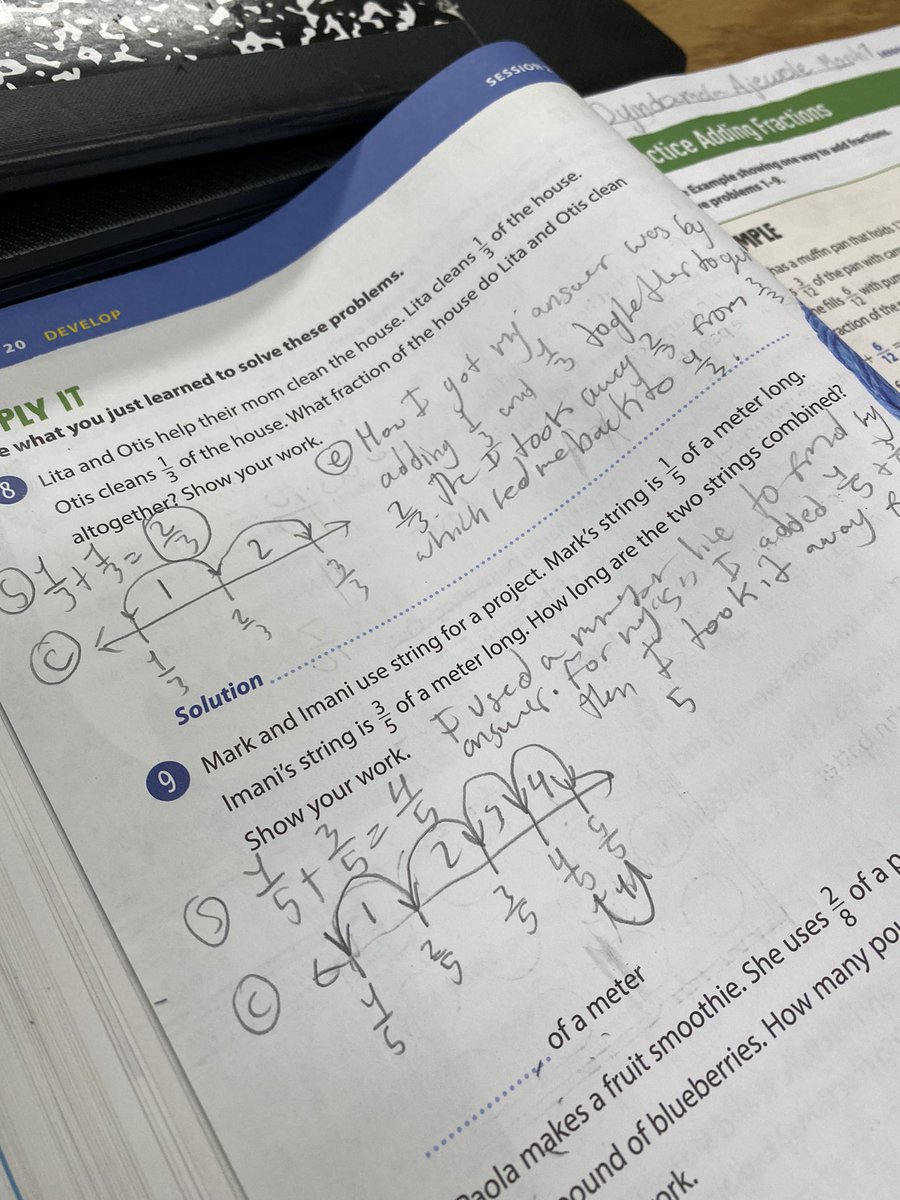 SESSION
20 DEVELOP
PLY IT
e what you just learned to solve these problems.
8 Lita and Otis help their mom clean the house. Lita cleans 1/3 of the house.
Otis cleans 1/3 of the house. What fraction of the house do Lita and Otis clean
altogether? Show your work.
S 1/3 + 1/3 = 2/3
e How I got my answer was by
adding 1/3 and 1/3 together to
2/3. The I took away 2/3 from 3/3
which led me back to
C
1 2
1/3 2/3 3/3
Solution
9 Mark and Imani use string for a project. Mark's string is 1/5 of a meter long.
Imani's string is 3/5 of a meter long. How long are the two strings combined?
Show your work.
I used a line to find my
answer. For I added 1/5 +
then I took it away
5
S 1/5 + 3/5 = 4/5
C
1 2 3 4
1/5 2/5 3/5 4/5
of a meter
aola makes a fruit smoothie. She uses 2/8 of a p
ound of blueberries. How many pou
ork.
Ajewole
ctice Adding Fractions
Example showing one way to add fractions.
e problems 1-9.
MPLE
has a muffin pan that holds 1
3/12 of the pan with
he fills 6/12 with pum
raction of the
6/12 =